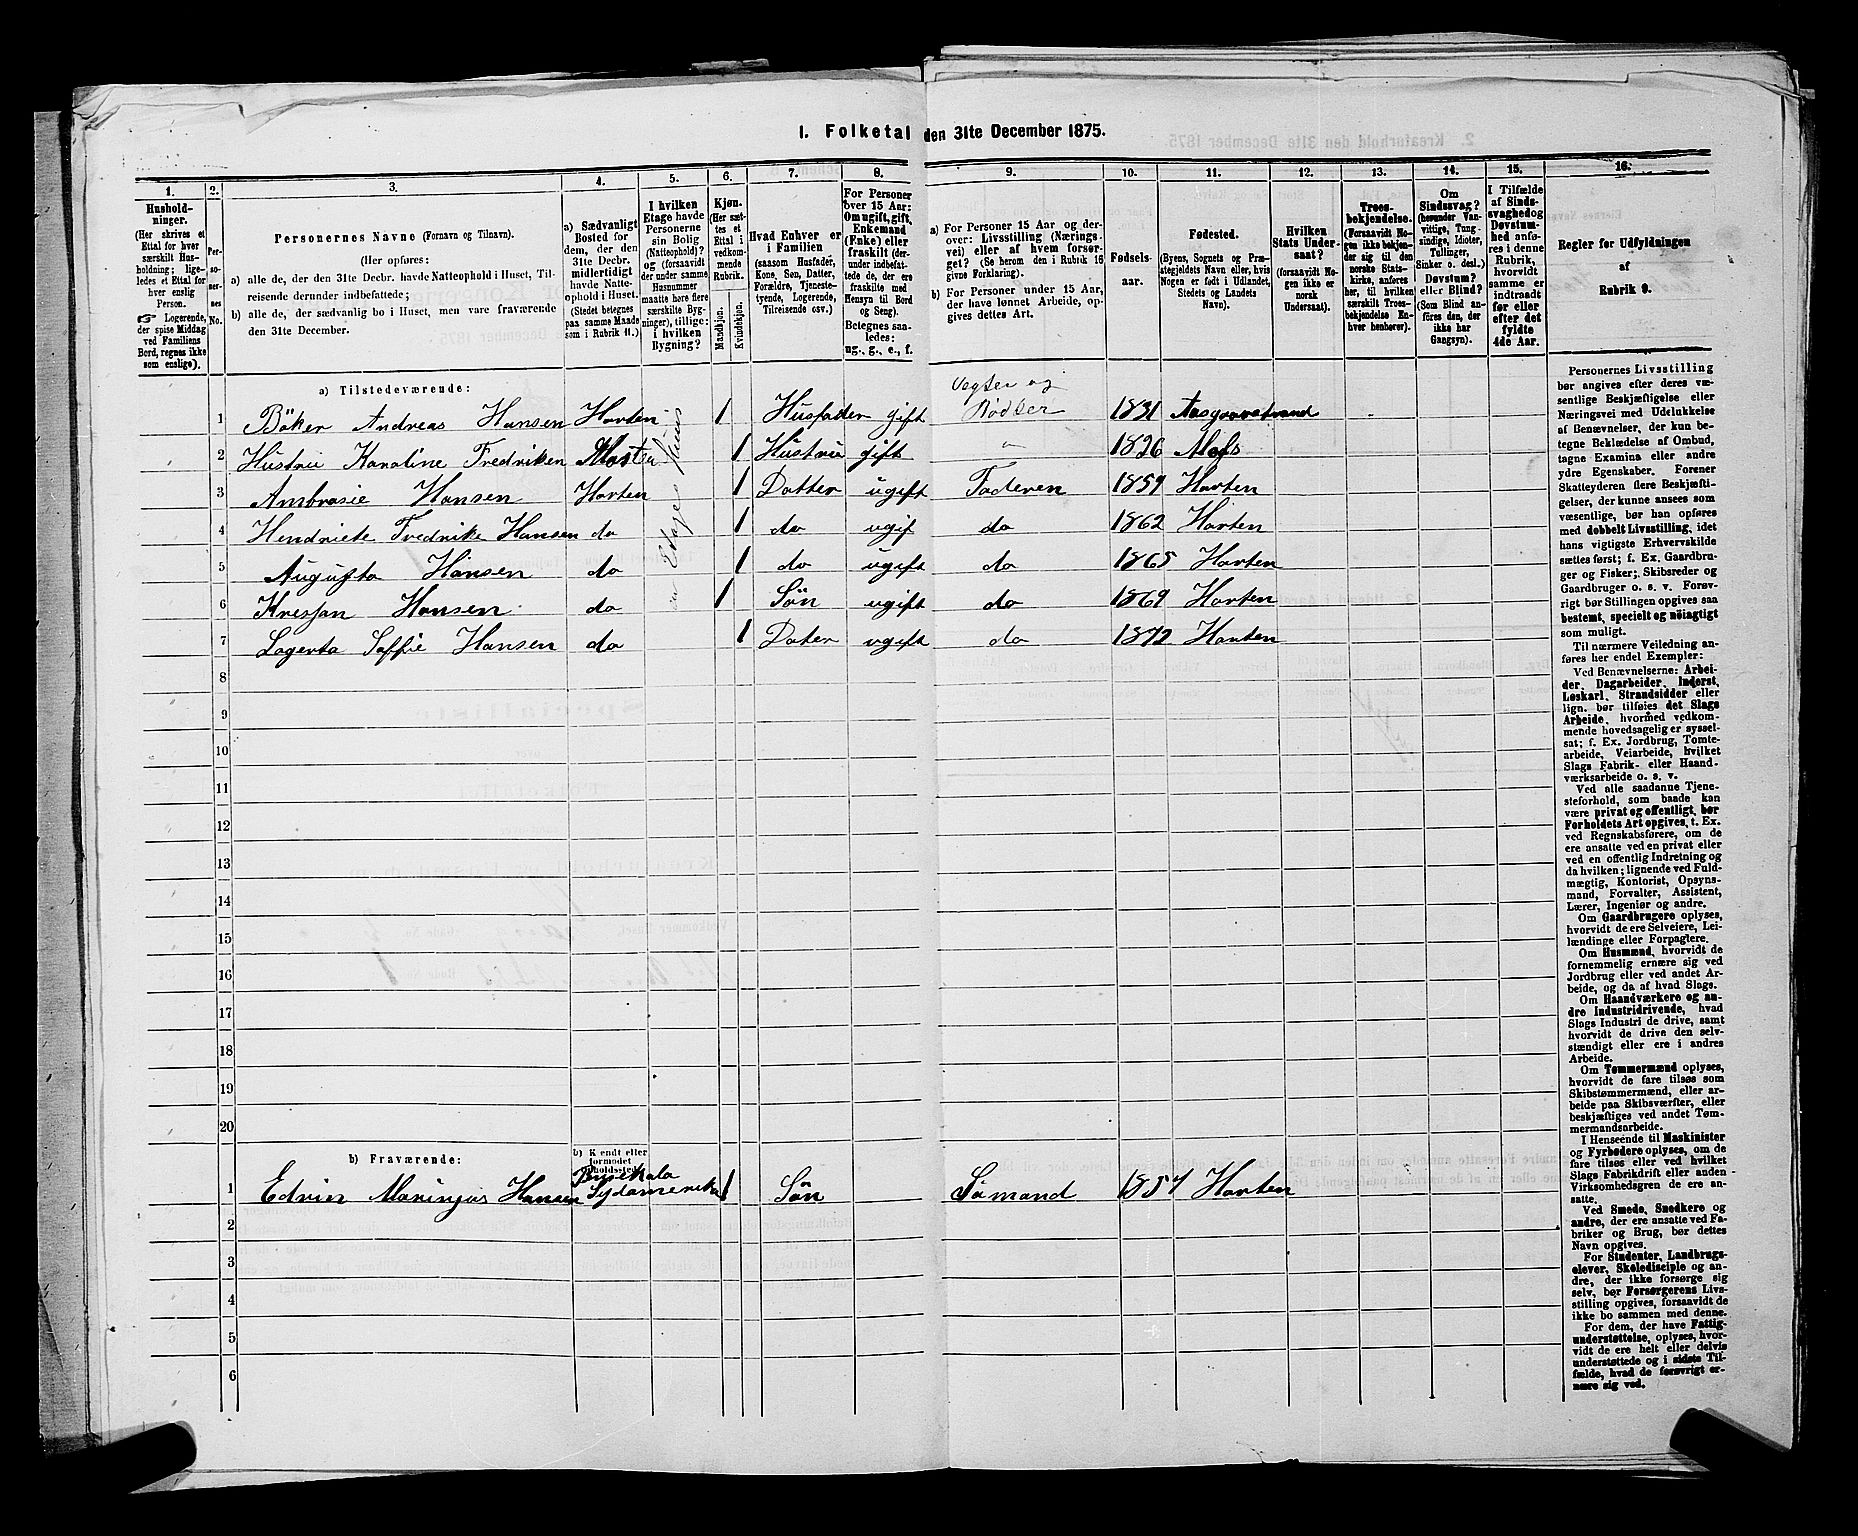 1. Folketal den 31te December 1875.
1. 2. 3. 4. 5. 6. 7. 8. 9. 10. 11. 12. 13. 14. 15. 16.
Hushold-
ninger.
(Her skrives et
Ettal for hver
særskilt Hus-
holdning; lige-
ledes et Ettal for
hver enslig
Person.
☞ Logerende,
der spise Middag
ved Familiens
Bord, regnes ikke
som enslige).
Per-
so-
ner-
nes
No.
Personernes Navne (Fornavn og Tilnavn).
(Her opføres:
a) alle de, der den 31te Decbr. havde Natteophold i Huset, Til-
reisende derunder indbefattede;
b) alle de, der sædvanlig bo i Huset, men vare fraværende
den 31te December.
a) Sædvanligt
Bosted for
dem, der den
31te Decbr.
midlertidigt
havde Natte-
ophold i Huset.
(Stedet betegnes
paa samme Maade
som i Rubrik 11.)
I hvilken
Etage havde
Personerne
sin Bolig
(Natteophold)?
og (forsaavidt
der under samme
Husnummer
maatte høre flere
særskilte Byg-
ninger), tillige:
i hvilken
Bygning?
Kjøn.
(Her sæt-
tes et
Ettal i
vedkom-
mende
Rubrik.
Mandkjøn.
Kvindekjøn.
Hvad Enhver er
i Familien
(saasom Husfader,
Kone, Søn, Datter,
Forældre, Tjeneste-
tyende, Logerende,
Tilreisende osv.)
For Personer
over 15 Aar:
Om ugift, gift,
Enkemand
(Enke) eller
fraskilt (der-
under indbefat-
tede de, der ere
fraskilte med
Hensyn til Bord
og Seng).
Betegnes saa-
ledes:
ug., g., e., f.
a) For Personer 15 Aar og der-
over: Livsstilling (Nærings-
vei) eller af hvem forsør-
get? (Se herom den i Rubrik 16
givne Forklaring).
b) For Personer under 15 Aar,
der have lønnet Arbeide, op-
gives dettes Art.
Fødsels-
aar.
Fødested.
(Byens, Sognets og Præ-
stegjeldets Navn eller, hvis
Nogen er født i Udlandet,
Stedets og Landets
Navn).
Hvilken
Stats Under-
saat?
(forsaavidt No-
gen ikke er
norsk
Undersaat).
Troes-
bekjendelse.
(Forsaavidt No-
gen ikke bekjen-
der sig til den
norske Stats-
kirke, anføres
her, til hvilken
særskilt Troes-
bekjendelse En-
hver henhører).
Om
Sindssvag?
(herunder Van-
vittige, Tung-
sindige, Idioter,
Tullinger,
Sinker o. desl.)
Døvstum?
eller Blind?
(Som Blind an-
føres den, der
ikke har
Gangsyn).
I Tilfælde
af Sinds-
svaghed og
Døvstum-
hed anfø-
res i denne
Rubrik,
hvorvidt
samme er
indtraadt
før eller
efter det
fyldte
4de Aar.
Regler før Udfyldningen
af
Rubrik 9.
a) Tilstedeværende:
1 Böker Andreas Hansen Horten 1 Husfader gift Vegter og Bödker 1831 Aasgaarstrand
2 Hustru Karoline Fredriken Horten 1 Hustru gift " 1826 Moss
3 Ambrosie Hansen Horten 1 Datter ugift Faderen 1859 Horten
4 Hendriete Fredrike Hansen do 1 do ugif do 1862 Horten
5 Augusta Hansen do 1 do ugift do 1865 Horten
6 Kresjan Hansen do 1 Sön ugift do 1869 Horten
7 Lagerta Soffie Hansen do 1 Dater ugift do 1872 Horten
8
9
10
11
12
13
14
15
16
17
18
19
20
b) Fraværende:
b) Kjendt eller
formodet
Opholdssted
1 Edvien Maringus Hansen Pensekola Sydamerika 1 Sön Sömand 1857 Horten
2
3
4
5
6
Personernes Livsstilling
bør angives efter deres væ-
sentlige Beskjæftigelse eller
Næringsvei med Udelukkelse
af Benævnelser, der kun be-
tegne Beklædelse af Ombud,
tagne Examina eller andre
ydre Egenskaber. Forener
Skatteyderen flere Beskjæfti-
gelser, der kunne ansees som
væsentlige, bør han opføres
med dobbelt Livsstilling, idet
hans vigtigste Erhvervskilde
sættes først; f. Ex. Gaardbru-
ger og Fisker; Skibsreder og
Gaardbruger o. s. v. Forøv-
rigt bør Stillingen opgives saa
bestemt, specielt og nøiagtigt
som muligt.
Til nærmere Veiledning an-
føres her endel Exempler:
Ved Benævnelserne: Arbei-
der, Dagarbeider, Inderst,
Løskarl, Strandsidder eller
lign. bør tilføies det Slags
Arbeide, hvormed vedkom-
mende hovedsagelig er syssel-
sat; f. Ex. Jordbrug, Tomte-
arbeide, Veiarbeide, hvilket
Slags Fabrik- eller Haand-
værksarbeide o. s. v.
Ved alle saadanne Tjene-
steforhold, som baade kan
være privat og offentligt, bør
Forholdets Art opgives, t. Ex.
ved Regnskabsførere, om de
ere ansatte ved en privat eller
ved en offentlig Indretning og
da hvilken; lignende ved Fuld-
mægtig, Kontorist, Opsyns-
mand, Forvalter, Assistent,
Lærer, Ingeniør og andre.
Om Gaardbrugere oplyses,
hvorvidt de ere Selveiere, Lei-
lændinge eller Forpagtere.
Om Husmænd, hvorvidt de
fornemmelig ernære sig ved
Jordbrug eller ved andet Ar-
beide, og da af hvad Slags.
Om Haandværkere og an-
dre Industridrivende, hvad
Slags Industri de drive, samt
hvorvidt de drive den selv-
stændigt eller ere i andres
Arbeide.
Om Tømmermænd oplyses,
hvorvidt de fare tilsøs som
Skibstømmermænd, eller ar-
beide paa Skibsværfter, eller
beskjæftiges ved andet Tøm-
mermandsarbeide.
I Henseende til Maskinister
og Fyrbødere oplyses, om de
fare tilsøs eller ved hvilket
Slags Fabrikdrift eller anden
Virksomhedsgren de ere an-
satte.
Ved Smede, Snedkere og
andre, der ere ansatte ved Fa-
briker og Brug, bør dettes
Navn opgives.
For Studenter, Landbrugs-
elever, Skoledisciple og an-
dre, der ikke forsørge sig
selv, bør Forsørgerens Livs-
stilling opgives, forsaavidt de
ikke bo sammen med denne.
For dem, der have Fattig-
understøttelse, oplyses, hvor-
vidt de ere helt eller delvis
understøttede og i sidste Til-
fælde, hvad de forøvrigt er-
nære sig ved.